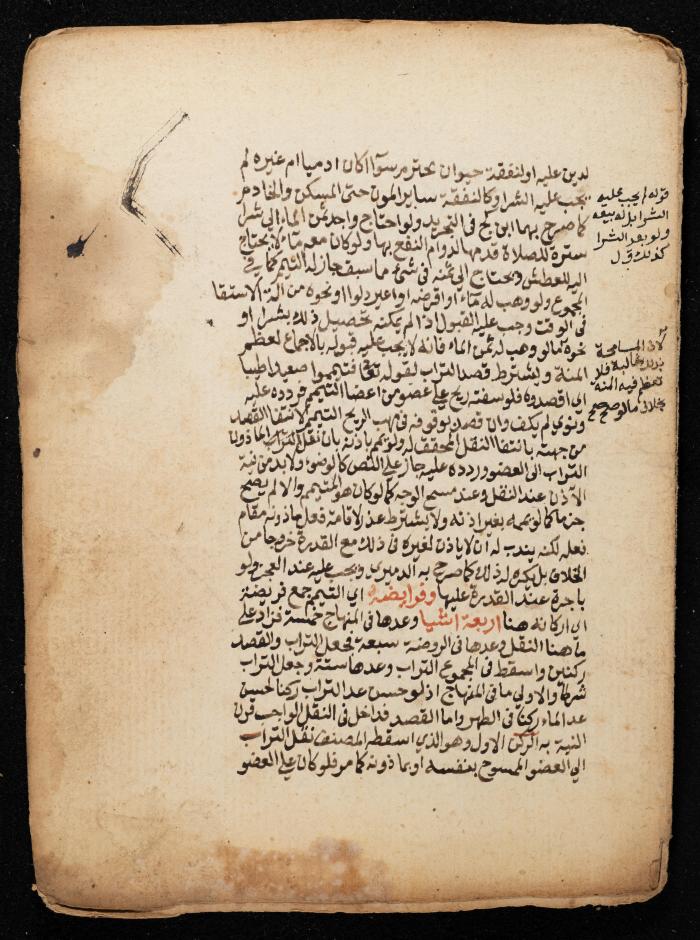 لدين عليه او لنفقة حيوان محترم سوآا كان ادميا ام غيره لم
يجب عليه الشرا وكالنفقة ساير المون حتى المسكن والخادم
كما صرح بهما ابن كج في التجريد ولو احتاج واجد ثمن الماء الى شرا
سترة للصلاة قدمها لدوام النفع بها ولو كان معه مآء لا يحتاج
اليه للعطش ويحتاج الى ثمنه في شئ مما سبق جاز له التيمم كما في
المجموع ولو وهب له مآء او اقرضه او اعير دلوا او نحوه من الة الاستقا
في الوقت وجب عليه القبول اذا لم يمكنه تحصيل ذلك بشرا او
نحوه كما لو وهب له ثمن الماء فانه لا يجب عليه قبوله بالاجماع لعظم
المنة ويشترط قصد التراب لقوله تعالى فتيمموا صعيدا طيبا
اي اقصدوه فلو سفته ريح على عضو من اعضا التيمم فردده عليه
ونوى لم يكف وان قصد بوقوفه في مهب الريح التيمم لانتفا القصد
من جهته بانتفا النقل المحقق له ولو يمم باذنه بان نقل الماذون
التراب الى العضو وردده عليه جاز على النص كالوضوء ولا بد من نية
الآذن عند النقل وعند مسح الوجه كما لو كان هو المتيمم والا لم يصح
جزما كما لو يممه بغير اذنه ولا يشترط عذر لاقامة فعل ماذونه مقام
فعله لكنه يندب له ان لا ياذن لغيره في ذلك مع القدرة خروجا من
الخلاف بل يكره له ذلك كما صرح به الدميري ويجب عليه عند العجز ولو
باجرة عند القدرة عليها وفرايضه اي التيمم جمع فريضة
اي اركانه هنا اربعة اشيا وعدها في المنهاج خمسة فزاد على
ما هنا النقل وعدها في الروضة سبعة فجعل التراب والقصد
ركنين واسقط في المجموع التراب وعدها ستة وجعل التراب
شرطا والاولى ما في المنهاج اذ لو حسن عد التراب ركنا لحسن
عد الماء ركنا في الطهر واما القصد فداخل في النقل الواجب قرن
النية به الركن الاول وهو الذي اسقطه المصنف نقل التراب
الى العضو الممسوح بنفسه او بماذونه كما مر فلو كان على العضو
قوله لم يجب عليه
الشرا بل له بيعه
ولو بعد الشرا
كذلك
لان المسامحة
بذلك غالبة فلا
تعظم فيه المنة
بخلاف ما لو